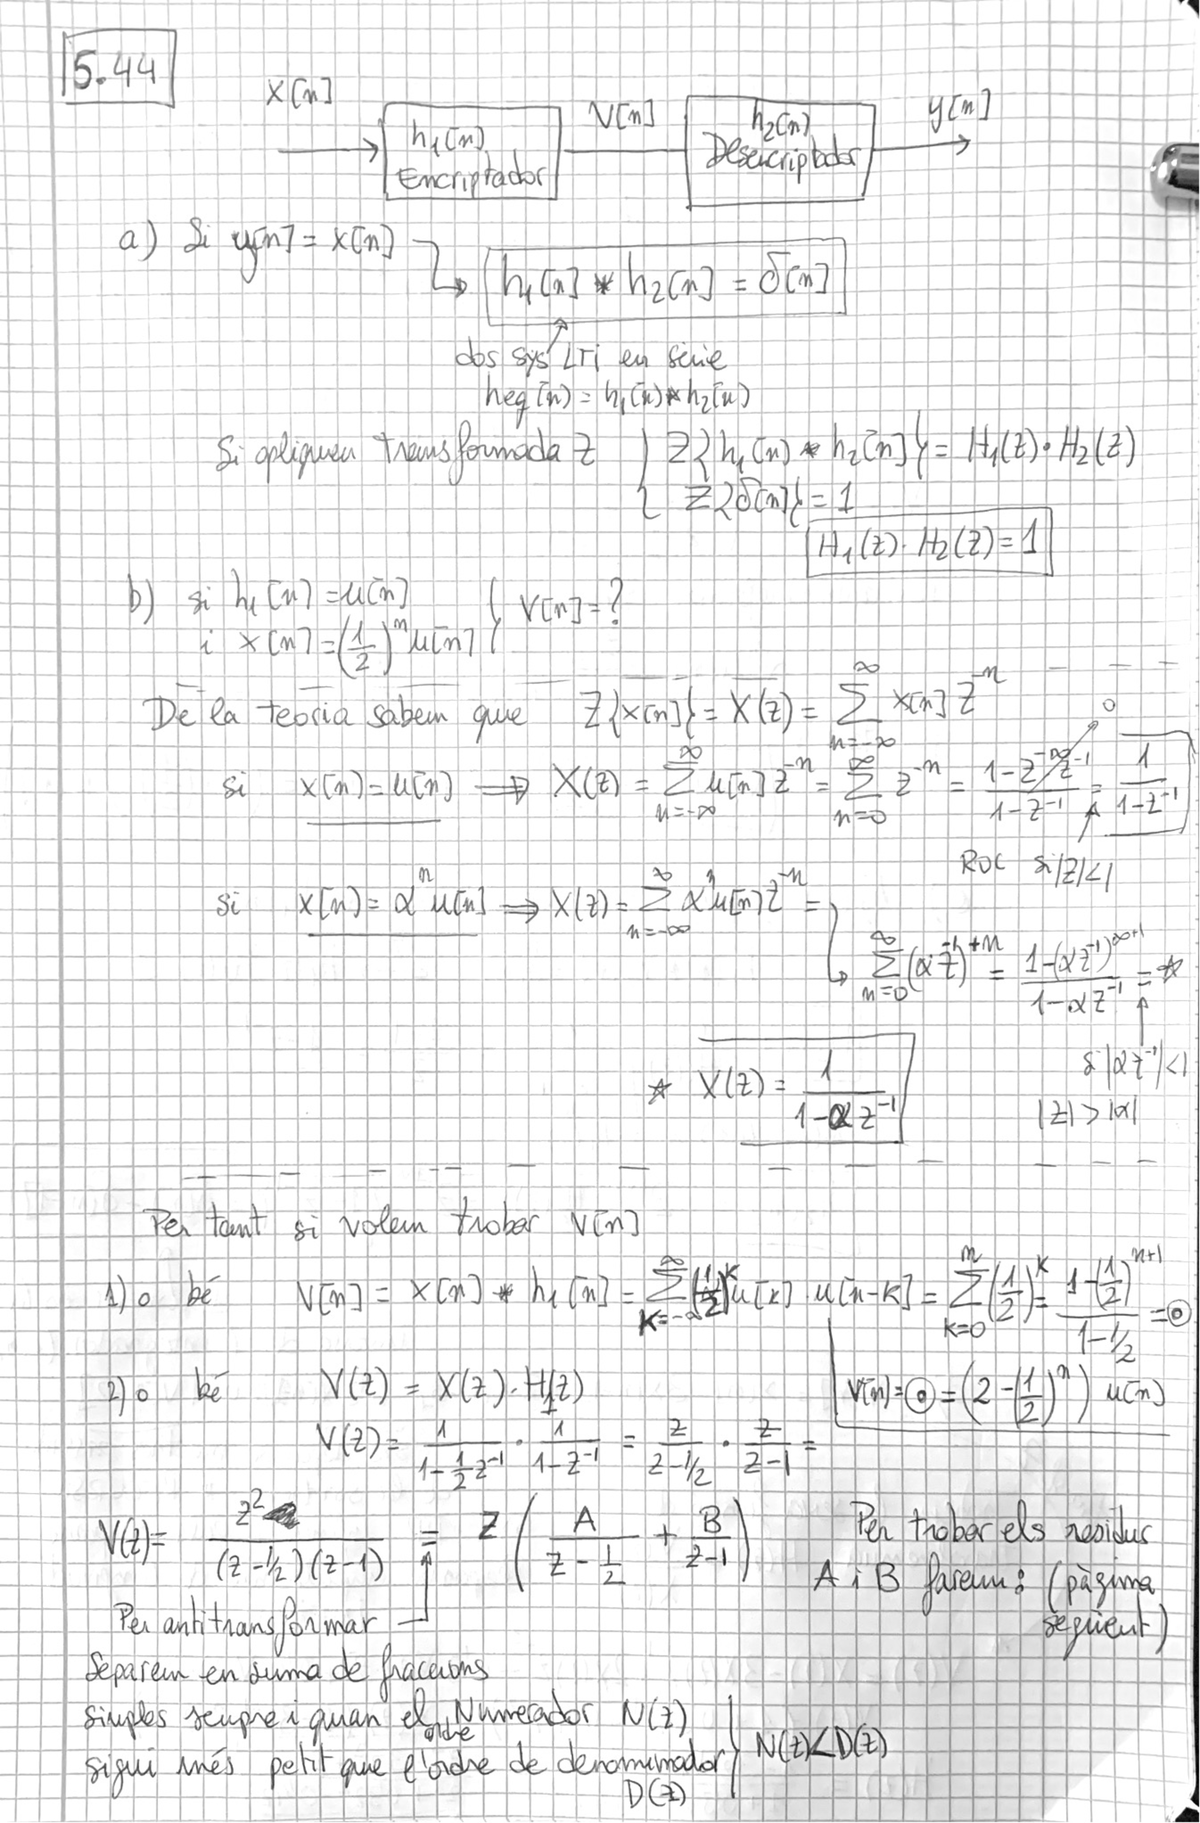 5.44
x[n] h1[n] Encriptador v[n] h2[n] Desencriptador y[n]
a) Si y[n] = x[n] → h1[n] * h2[n] = δ[n]
dos sys LTI en sèrie
heq[n] = h1[n] * h2[n]
Si apliquem transformada Z { Z{h1[n] * h2[n]} = H1(z)·H2(z)
Z{δ[n]} = 1
H1(z)·H2(z) = 1
b) si h1[n] = u[n]
i x[n] = (1/2)^n u[n] } v[n] = ?
De la teoria sabem que Z{x[n]} = X(z) = ∑_{n=-∞}^{∞} x[n] z^{-n}
si x[n] = u[n] ⟹ X(z) = ∑_{n=-∞}^{∞} u[n] z^{-n} = ∑_{n=0}^{∞} z^{-n} = (1-z^{-∞} z^{-1})/(1-z^{-1}) = 1/(1-z^{-1})
0
ROC si |z|<1
si x[n] = α^n u[n] ⟹ X(z) = ∑_{n=-∞}^{∞} α^n u[n] z^{-n} =
∑_{n=0}^{∞} (α z^{-1})^{+n} = (1-(αz^{-1})^{∞+1})/(1-αz^{-1}) = ☆
si |αz^{-1}|<1
☆ X(z) = 1/(1-αz^{-1})
|z|>|α|
Per tant si volem trobar v[n]
1) o bé v[n] = x[n] * h1[n] = ∑_{k=-∞}^{∞} (1/2)^k u[k]·u[n-k] = ∑_{k=0}^{n} (1/2)^k = (1-(1/2)^{n+1})/(1-1/2) = ⊙
v[n] = ⊙ = (2-(1/2)^n) u[n]
2) o bé V(z) = X(z)·H1(z)
V(z) = 1/(1-1/2 z^{-1}) · 1/(1-z^{-1}) = z/(z-1/2) · z/(z-1) =
V(z) = z^2/((z-1/2)(z-1)) = z (A/(z-1/2) + B/(z-1))
Per trobar els residus
A i B farem: (pàgina
següent)
Per antitransformar
Separem en suma de fraccions
simples sempre i quan el ordre Numerador N(z)
sigui més petit que l'ordre de denominador
D(z)
N(z)<D(z)